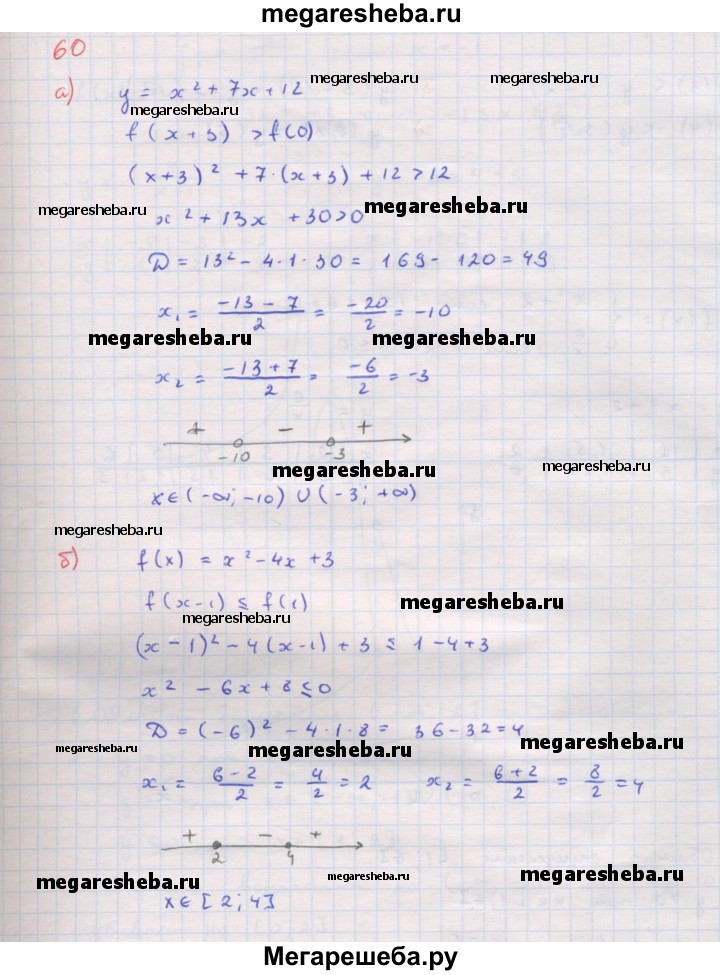 megaresheba.ru
60
а) y = x² + 7x + 12 megaresheba.ru megaresheba.ru
megaresheba.ru
f(x+3) > f(0)
(x+3)² + 7·(x+3) + 12 > 12
megaresheba.ru x² + 13x + 30 > 0 megaresheba.ru
D = 13² - 4·1·30 = 169 - 120 = 49
x₁ = (-13-7)/2 = -20/2 = -10
megaresheba.ru megaresheba.ru
x₂ = (-13+7)/2 = -6/2 = -3
+ - +
-10 -3
megaresheba.ru megaresheba.ru
x ∈ (-∞; -10) ∪ (-3; +∞)
megaresheba.ru
б) f(x) = x² - 4x + 3
f(x-1) ≤ f(1) megaresheba.ru
megaresheba.ru
(x-1)² - 4(x-1) + 3 ≤ 1-4+3
x² - 6x + 8 ≤ 0
D = (-6)² - 4·1·8 = 36-32 = 4
megaresheba.ru megaresheba.ru megaresheba.ru
x₁ = (6-2)/2 = 4/2 = 2 x₂ = (6+2)/2 = 8/2 = 4
+ - +
2 4
megaresheba.ru megaresheba.ru megaresheba.ru
x ∈ [2; 4]
Мегарешеба.ру